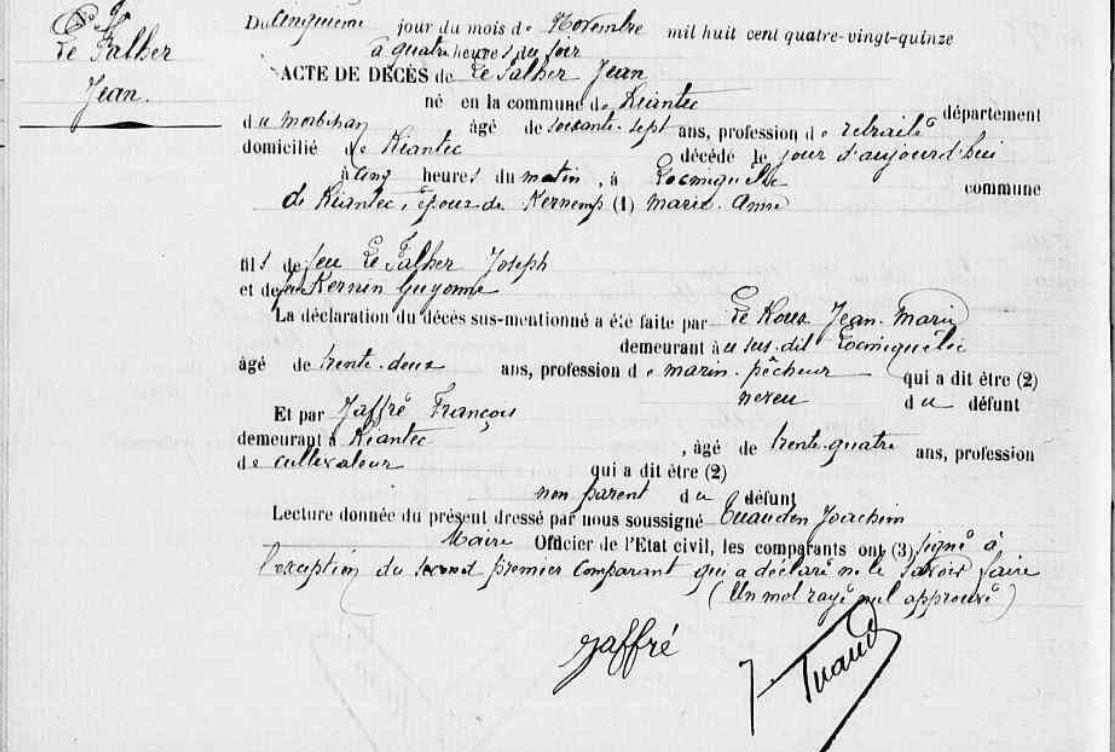 Le Palher
Jean.
Du cinquième jour du mois de Novembre mil huit cent quatre-vingt-quinze
à quatre heures du soir
ACTE DE DÉCÈS de Le Palher Jean
né en la commune de Riantec
département
du Morbihan âgé de soixante-sept ans, profession de retraité
domicilié de Riantec décédé le jour d'aujourd'hui
à cinq heures du matin, à Locmiquélic commune
de Riantec, époux de (1) Marie-Anne
fils de feu Le Palher Joseph
et de feue Kernin Guyonne
La déclaration du décès sus-mentionné a été faite par Le Roux Jean-Marie
demeurant au sus-dit Locmiquélic
âgé de trente-deux ans, profession de marin-pêcheur qui a dit être (2)
neveu du défunt
Et par Jaffré François
demeurant à Riantec, âgé de trente-quatre ans, profession
de cultivateur qui a dit être (2)
non parent du défunt
Lecture donnée du présent dressé par nous soussigné Joachim
Maire Officier de l'Etat civil, les comparants ont (3) signé à
l'exception du second premier comparant qui a déclaré ne le savoir faire
(Un mot rayé nul approuvé)
Jaffré